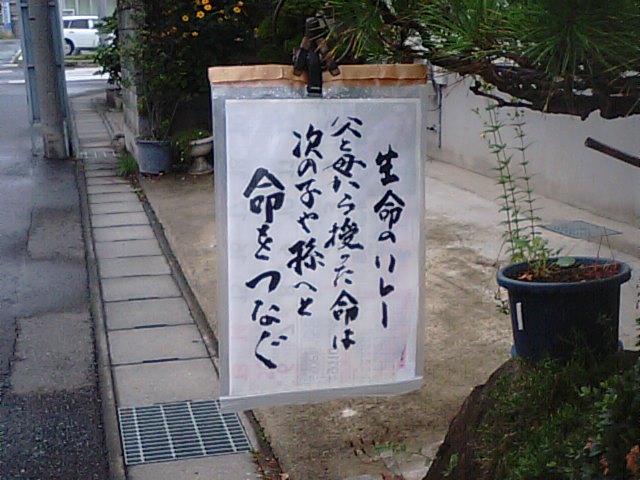 生命のリレー
父と母から授った命は
次の子や孫へと
命をつなぐ